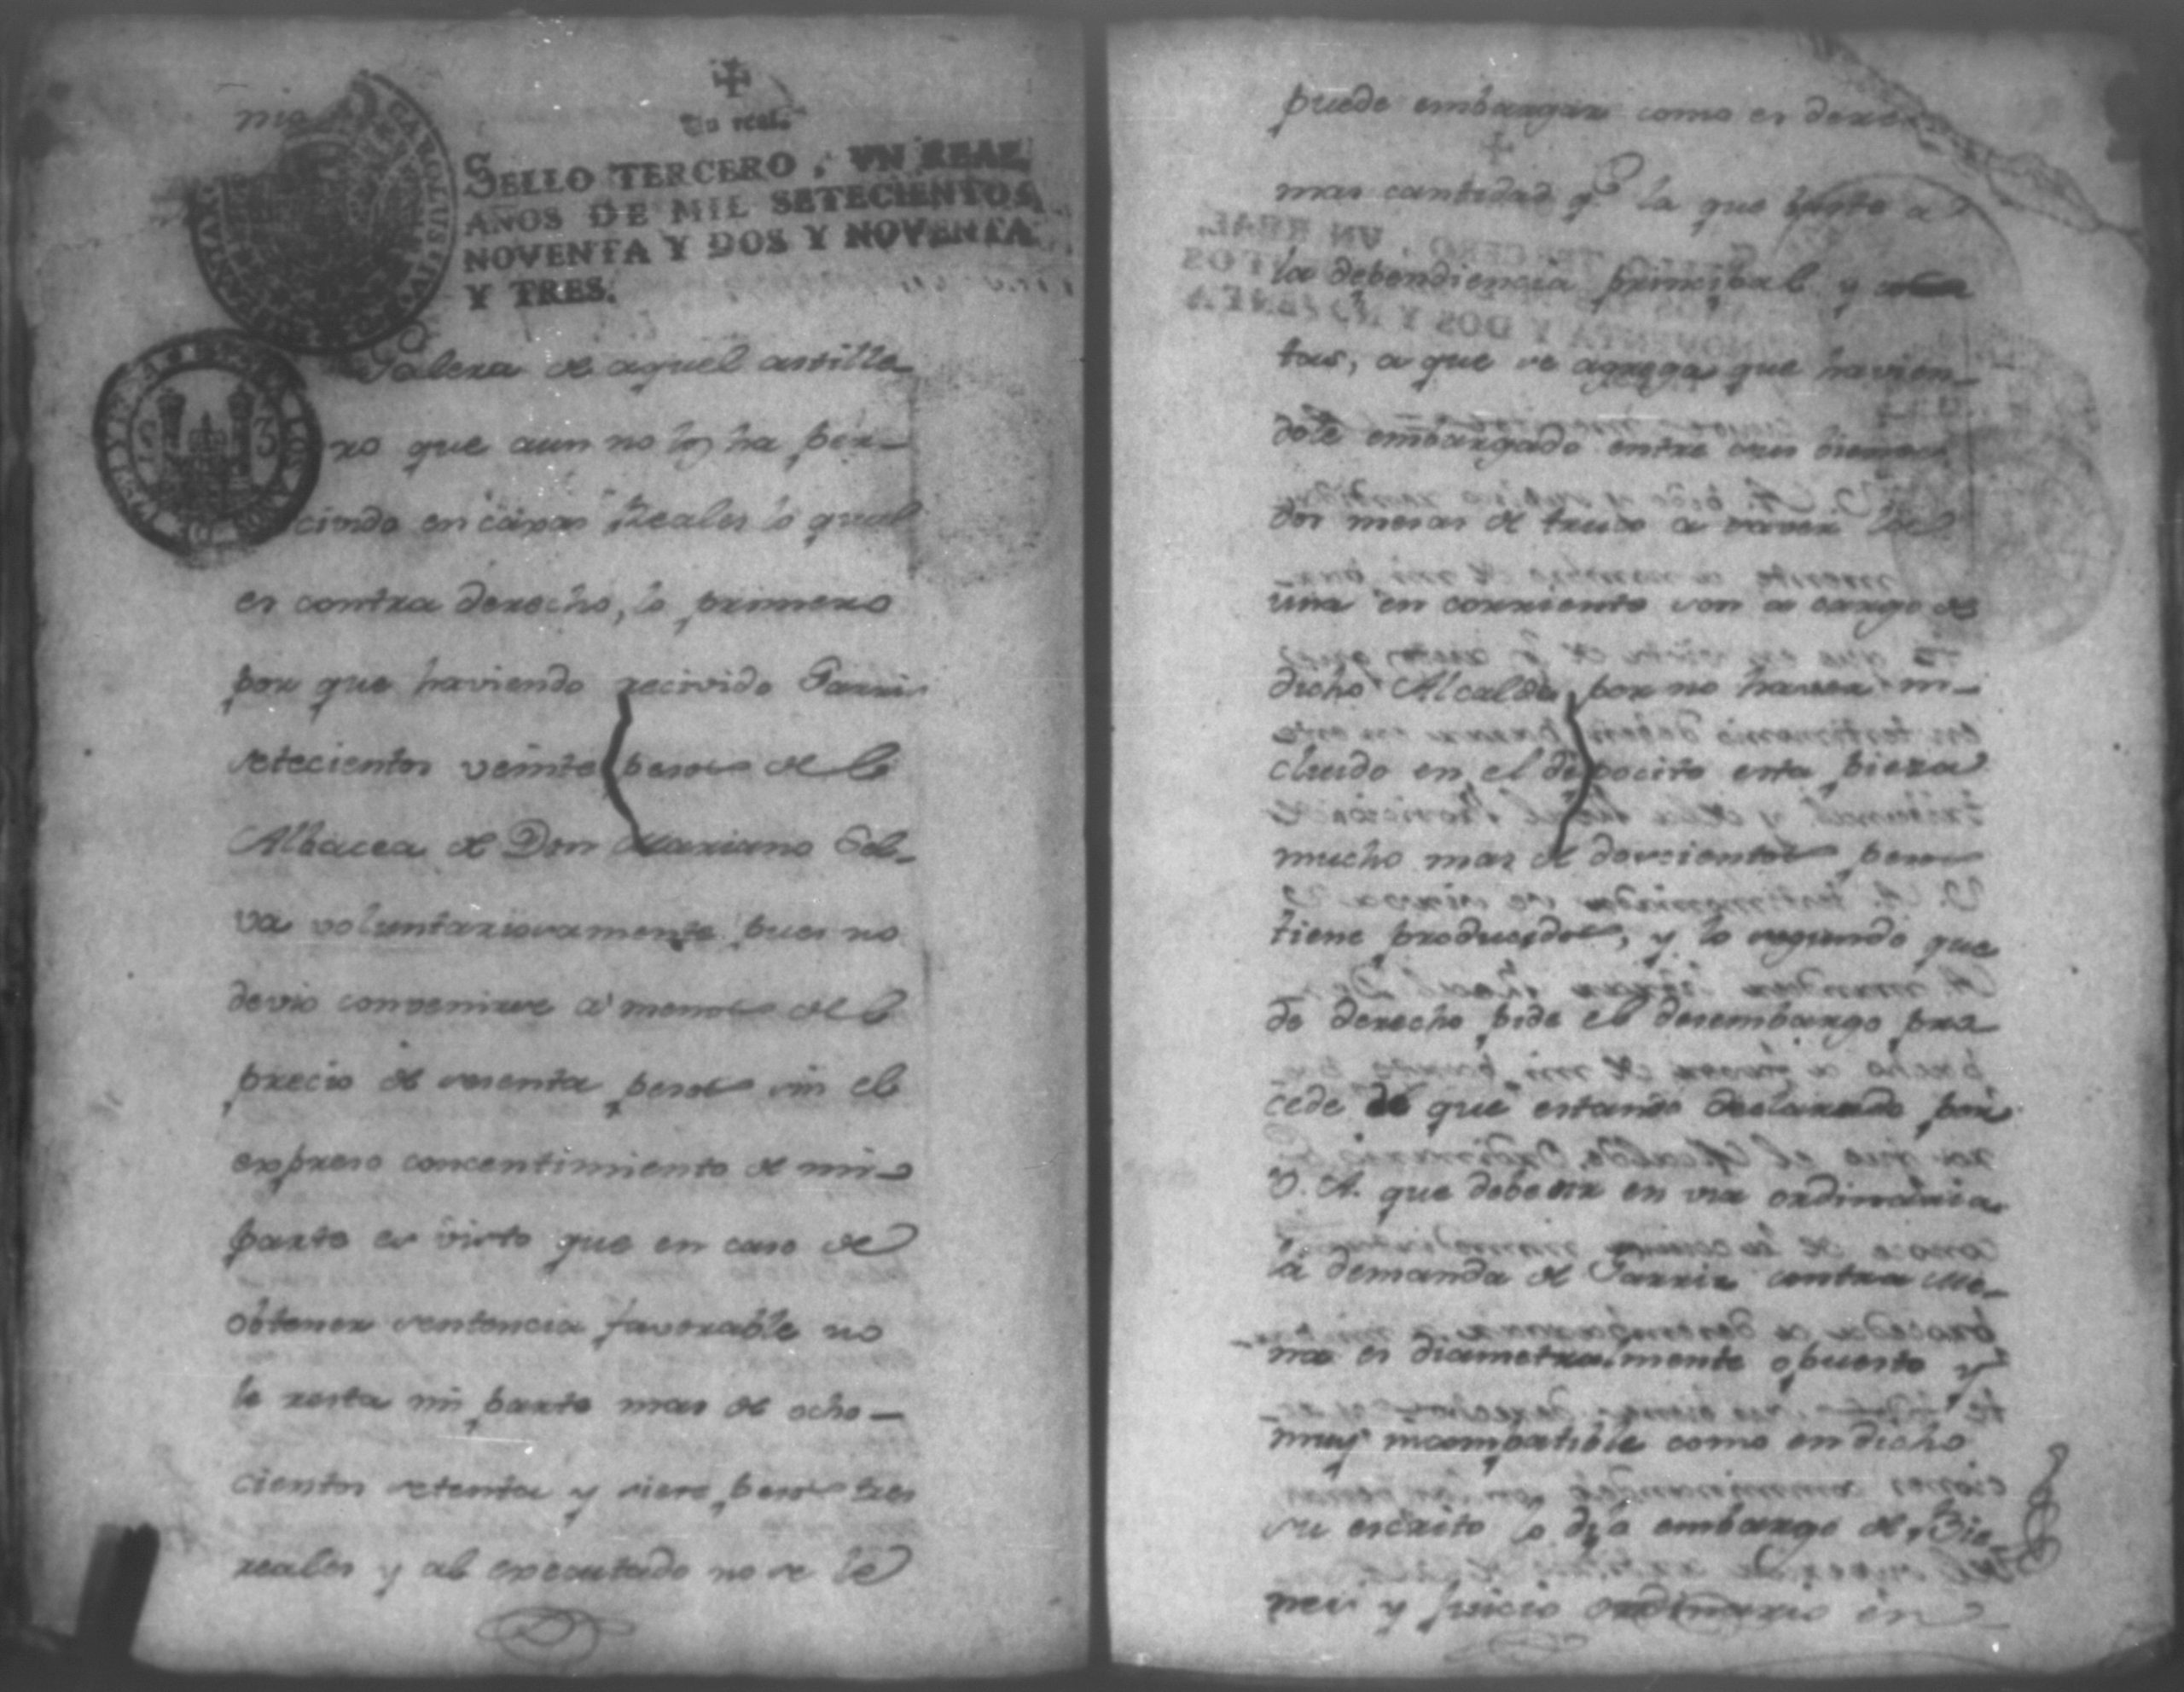 Un real.
SELLO TERCERO, VN REAL,
AÑOS DE MIL SETECIENTOS
NOVENTA Y DOS Y NOVENTA
Y TRES.
Galera de aquel astille-
ro que aun no los ha per-
civido en caxas Reales lo qual
es contra derecho, lo primero
por que haviendo recivido Garris
setecientos veinte pesos de la
Albacea de Don Mariano Sel-
va voluntariosamente pues no
devio convenirse a menos de el
precio de sesenta pesos sin el
expreso concentimiento de mi
parte es visto que en caso de
obtener sentencia favorable no
le resta mi parte mas de ocho-
cientos setenta y siete pesos tres
reales y al executado no se le
puede embargar como es dere
mas cantidad qe. la que baste a
la dependiencia principal y cos-
tas, a que se agrega que havien-
dole embargado entre sus bienes
dos mesas de truco a saver la
una en corriente son a cargo de
dicho Alcalde por no haver in-
cluido en el deposito esta pieza
mucho mas de doscientos pesos
tiene producidos, y lo segundo que
de derecho pide el desembargo pro
cede de que estando declarado por
V. A. que debe ser en via ordinaria
la demanda de Garris contra Me-
na es diametralmente opuesto y
muy incompatible como en dicho
su escrito lo dijo embargo de Bie-
nes y juicio ordinario en